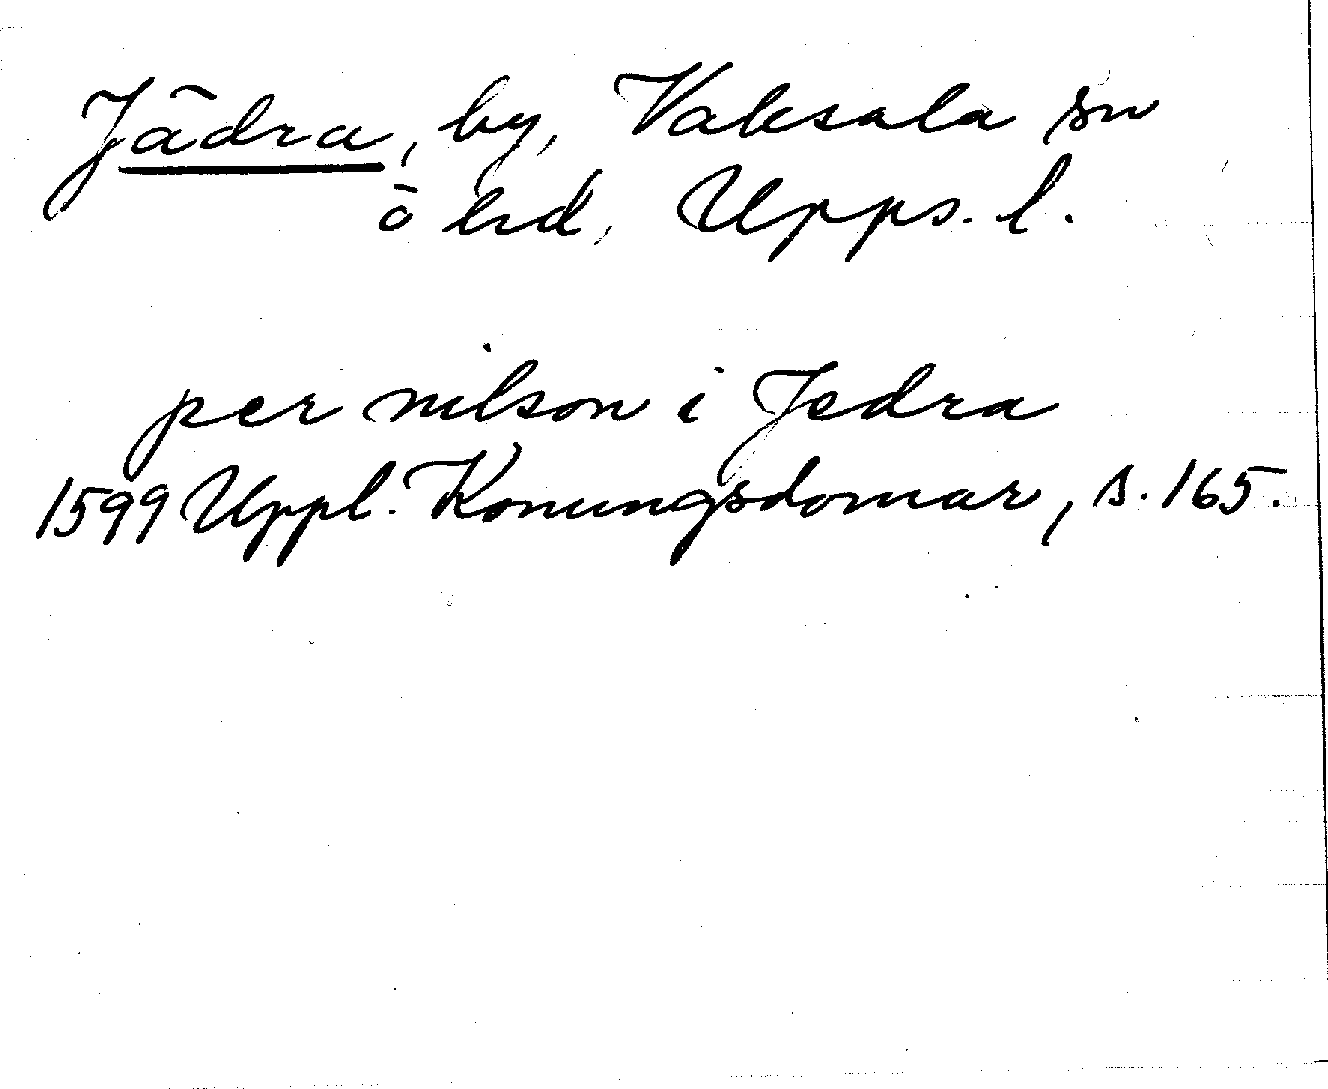 Jädra, by, Vaksala sn
ö hd, Upps. l.
per nilson i Jedra
1599 Uppl. Konungsdomar, s. 165.